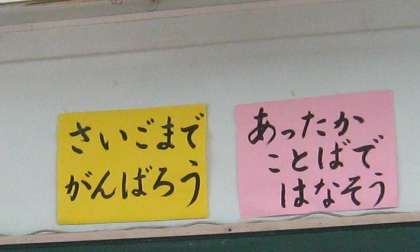 さいごまで
がんばろう
あったか
ことばで
はなそう